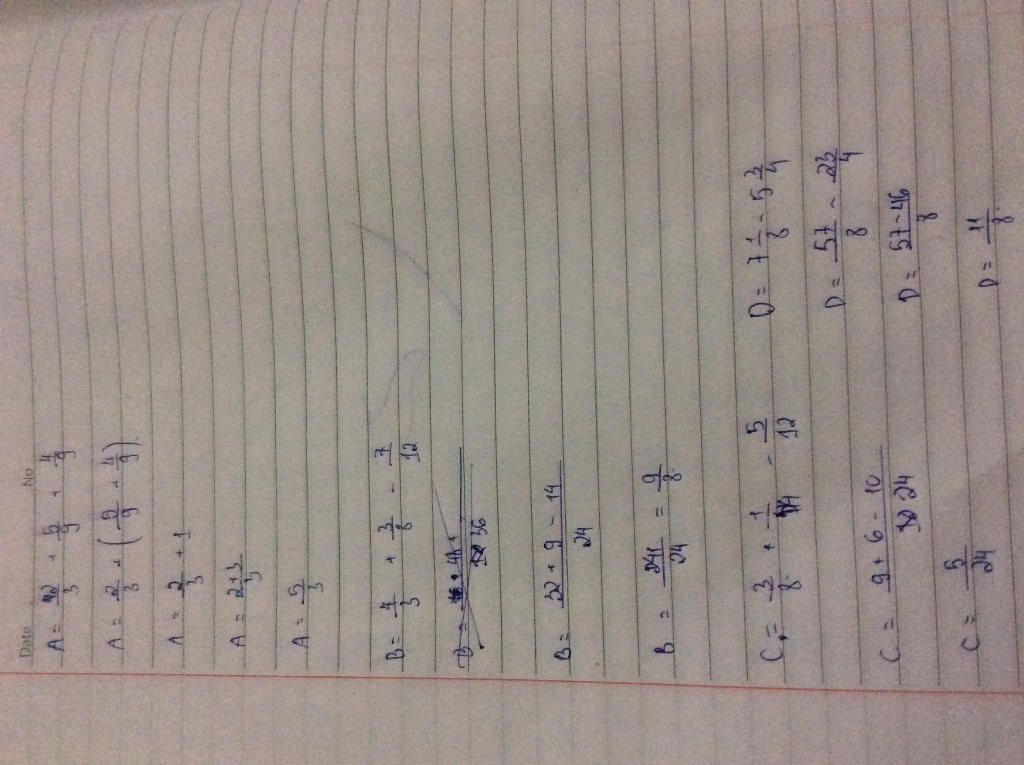 Date No
A = 2/3 + 5/9 + 4/9
A = 2/3 + (5/9 + 4/9)
A = 2/3 + 1
A = 2+3/3
A = 5/3
B = 4/3 + 3/8 - 7/12
B = 32 + 9 - 14/24
B = 27/24 = 9/8
C = 3/8 + 1/4 - 5/12
C = 9 + 6 - 10/24
C = 5/24
D = 7 1/8 - 5 3/4
D = 57/8 - 23/4
D = 57-46/8
D = 11/8